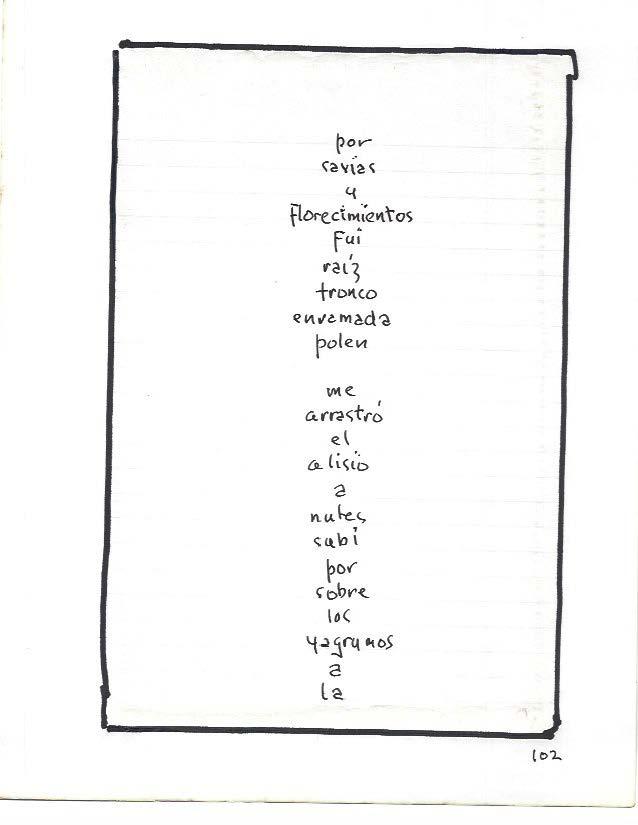 por
savias
y
florecimientos
fui
raíz
tronco
enramada
polen
me
arrastró
el
alisio
a
nubes
subí
por
sobre
los
yagrumos
a
la
102